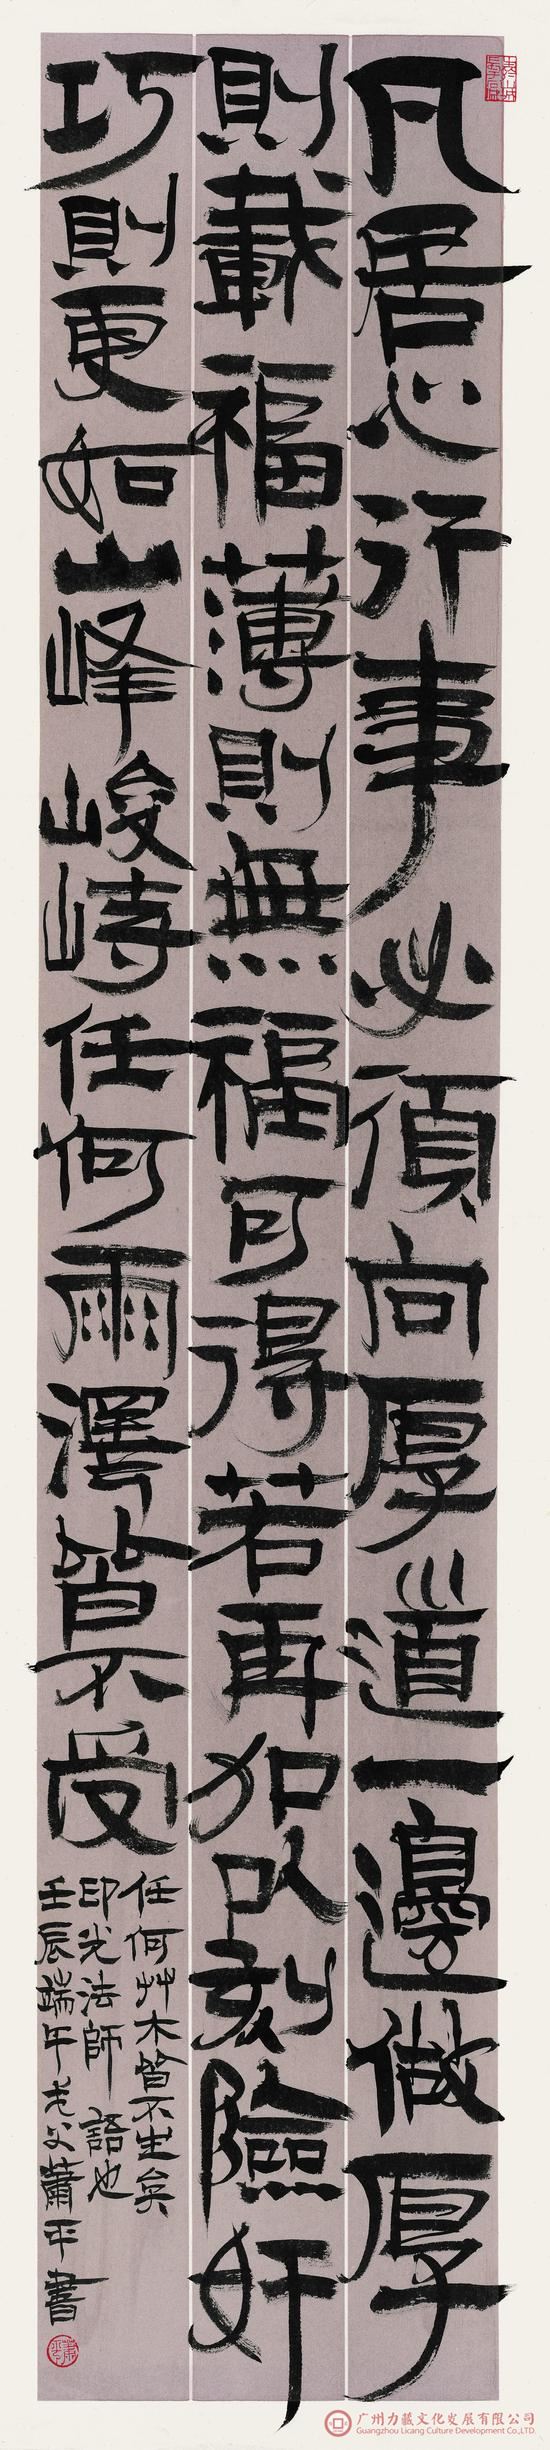 凡居心行事必須向厚道一邊做厚
則載福薄則無福可得若再加以刻險奸
巧則更如山峰峻峙任何雨澤皆不受
任何艸木皆不生矣
印光法師語也
壬辰端午老父蕭平書
广州力藏文化发展有限公司
Guangzhou Licang Culture Development Co.,Ltd.